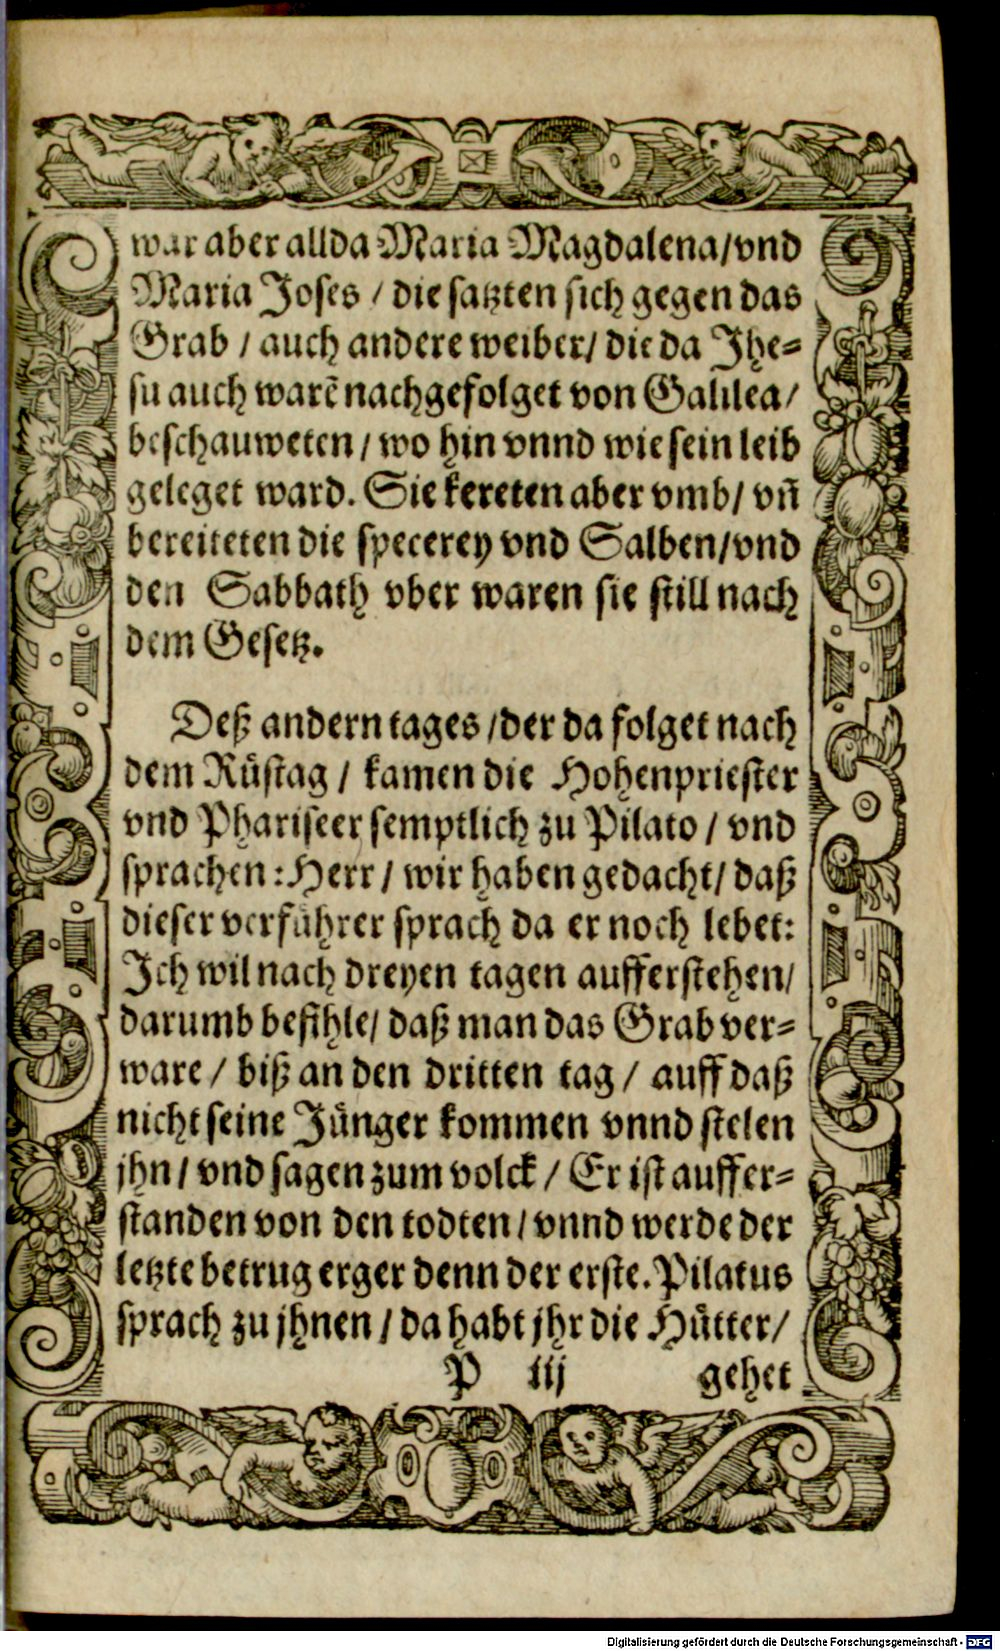 war aber allda Maria Magdalena/vnd
Maria Joses / die satzten sich gegen das
Grab / auch andere weiber/ die da Jhe⸗
su auch warē nachgefolget von Galilea/
beschauweten / wo hin vnnd wie sein leib
geleget ward. Sie kereten aber vmb/ vñ
bereiteten die specerey vnd Salben/vnd
den Sabbath vber waren sie still nach
dem Gesetz.
Deß andern tages /der da folget nach
dem Rüstag / kamen die Hohenpriester
vnd Phariseer semptlich zu Pilato / vnd
sprachen: Herr / wir haben gedacht/ daß
dieser verführer sprach da er noch lebet:
Ich wil nach dreyen tagen aufferstehen/
darumb befihle/ daß man das Grab ver⸗
ware / biß an den dritten tag / auff daß
nicht seine Jünger kommen vnnd stelen
jhn / vnd sagen zum volck / Er ist auffer⸗
standen von den todten / vnnd werde der
letzte betrug erger denn der erste. Pilatus
sprach zu jhnen / da habt jhr die Hütter/
P iij gehet
Digitalisierung gefördert durch die Deutsche Forschungsgemeinschaft - DFG